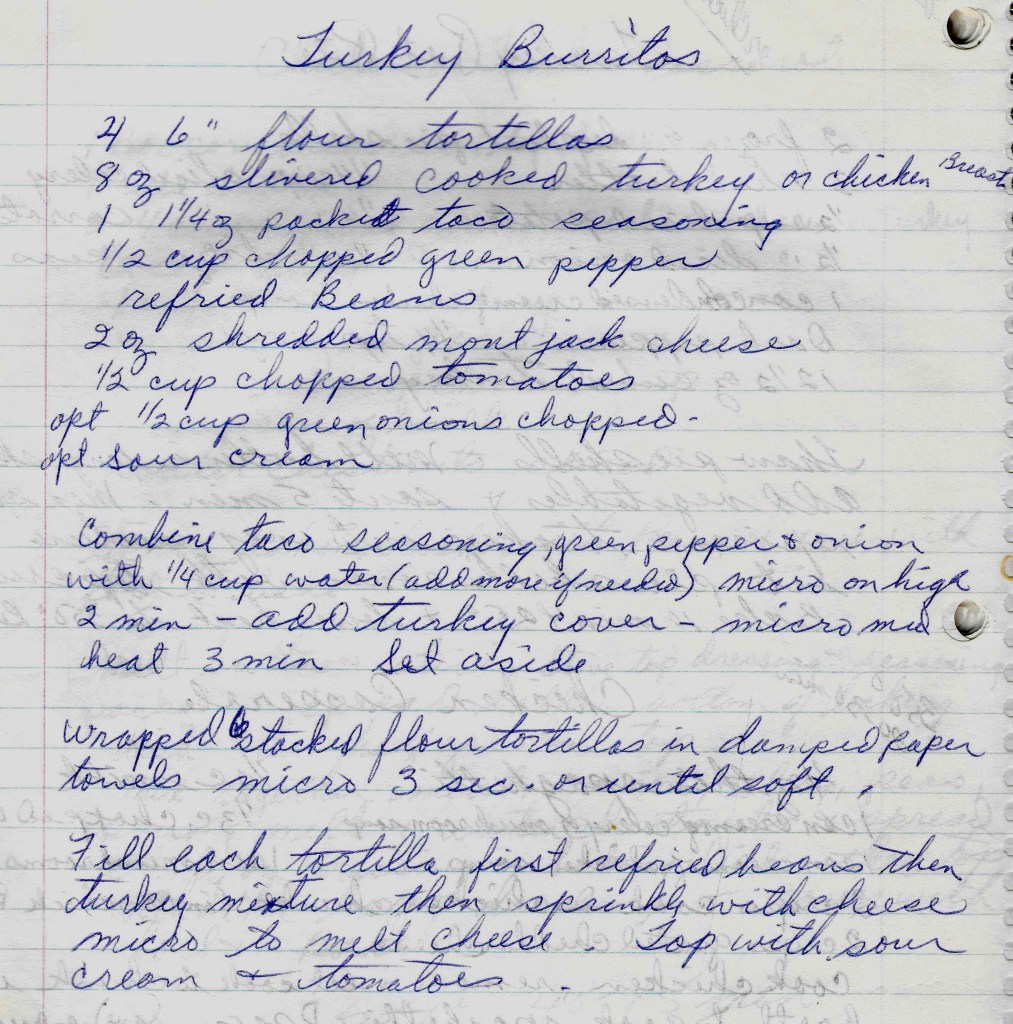 Turkey Burritos
4 6" flour tortillas
8 oz slivered cooked turkey or chicken Breast
1 1 1/4 oz packet taco seasoning
1/2 cup chopped green pepper
refried Beans
2 oz shredded mont jack cheese
1/2 cup chopped tomatoes
opt 1/2 cup green onions chopped -
opt sour cream
Combine taco seasoning, green pepper & onion
with 1/4 cup water (add more if needed) micro on high
2 min - add turkey cover - micro med
heat 3 min Set aside
Wrapped stacked flour tortillas in damped paper
towels micro 3 sec. or until soft.
Fill each tortilla first refried beans then
turkey mixture then sprinkle with cheese
micro to melt cheese. Top with sour
cream & tomatoes.